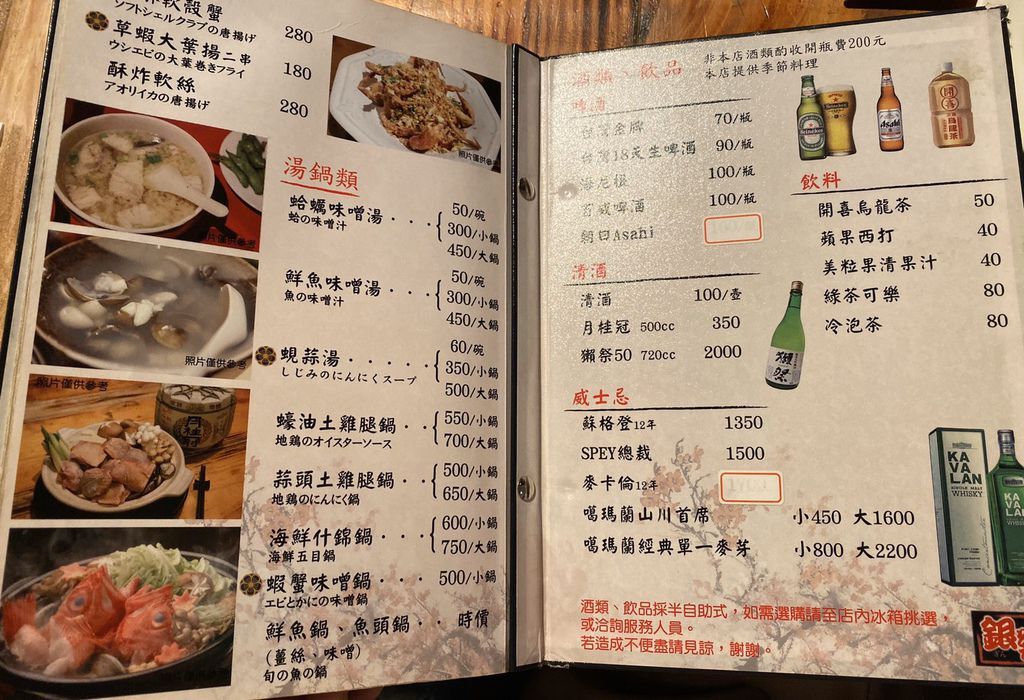 軟殼蟹
ソフトシェルクラブの唐揚げ 280
草蝦大葉揚二串 180
ウシエビの大葉巻きフライ
酥炸軟絲 280
アオリイカの唐揚げ
照片僅供參考
湯鍋類
蛤蠣味噌湯・・ 50/碗
蛤の味噌汁 300/小鍋
450/大鍋
照片僅供參考
鮮魚味噌湯・・ 50/碗
魚の味噌汁 300/小鍋
450/大鍋
照片僅供參考
蜆蒜湯・・・・・ 60/碗
しじみのにんにくスープ 350/小鍋
500/大鍋
照片僅供參考
蠔油土雞腿鍋・・ 550/小鍋
地鶏のオイスターソース 700/大鍋
蒜頭土雞腿鍋・・ 500/小鍋
地鶏のにんにく鍋 650/大鍋
海鮮什錦鍋・・・ 600/小鍋
海鮮五目鍋 750/大鍋
蝦蟹味噌鍋・・・ 500/小鍋
エビとかにの味噌鍋
鮮魚鍋、魚頭鍋・・ 時價
(薑絲、味噌)
旬の魚の鍋
照片僅供參考
酒類、飲品
非本店酒類酌收開瓶費200元
本店提供季節料理
啤酒
台灣金牌 70/瓶
台灣18天生啤酒 90/瓶
海尼根 100/瓶
百威啤酒 100/瓶
朝日Asahi
Heineken
Heineken
Asahi
開喜
烏龍茶
飲料
開喜烏龍茶 50
蘋果西打 40
美粒果清果汁 40
綠茶可樂 80
冷泡茶 80
清酒
清酒 100/壺
月桂冠 500cc 350
獺祭50 720cc 2000
獺祭
威士忌
蘇格登12年 1350
SPEY總裁 1500
麥卡倫12年
噶瑪蘭山川首席 小450 大1600
噶瑪蘭經典單一麥芽 小800 大2200
KAVALAN
SINGLE MALT
WHISKY
KAVALAN
酒類、飲品採半自助式，如需選購請至店內冰箱挑選，
或洽詢服務人員。
若造成不便盡請見諒，謝謝。
銀